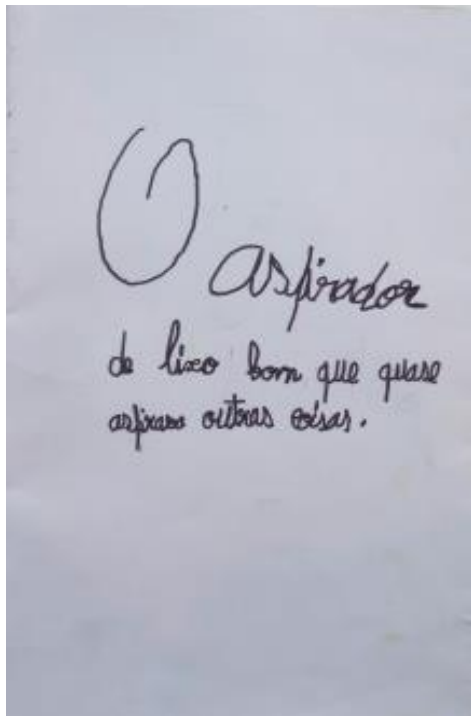 O
aspirador
de lixo bom que quase
aspirava outras coisas.